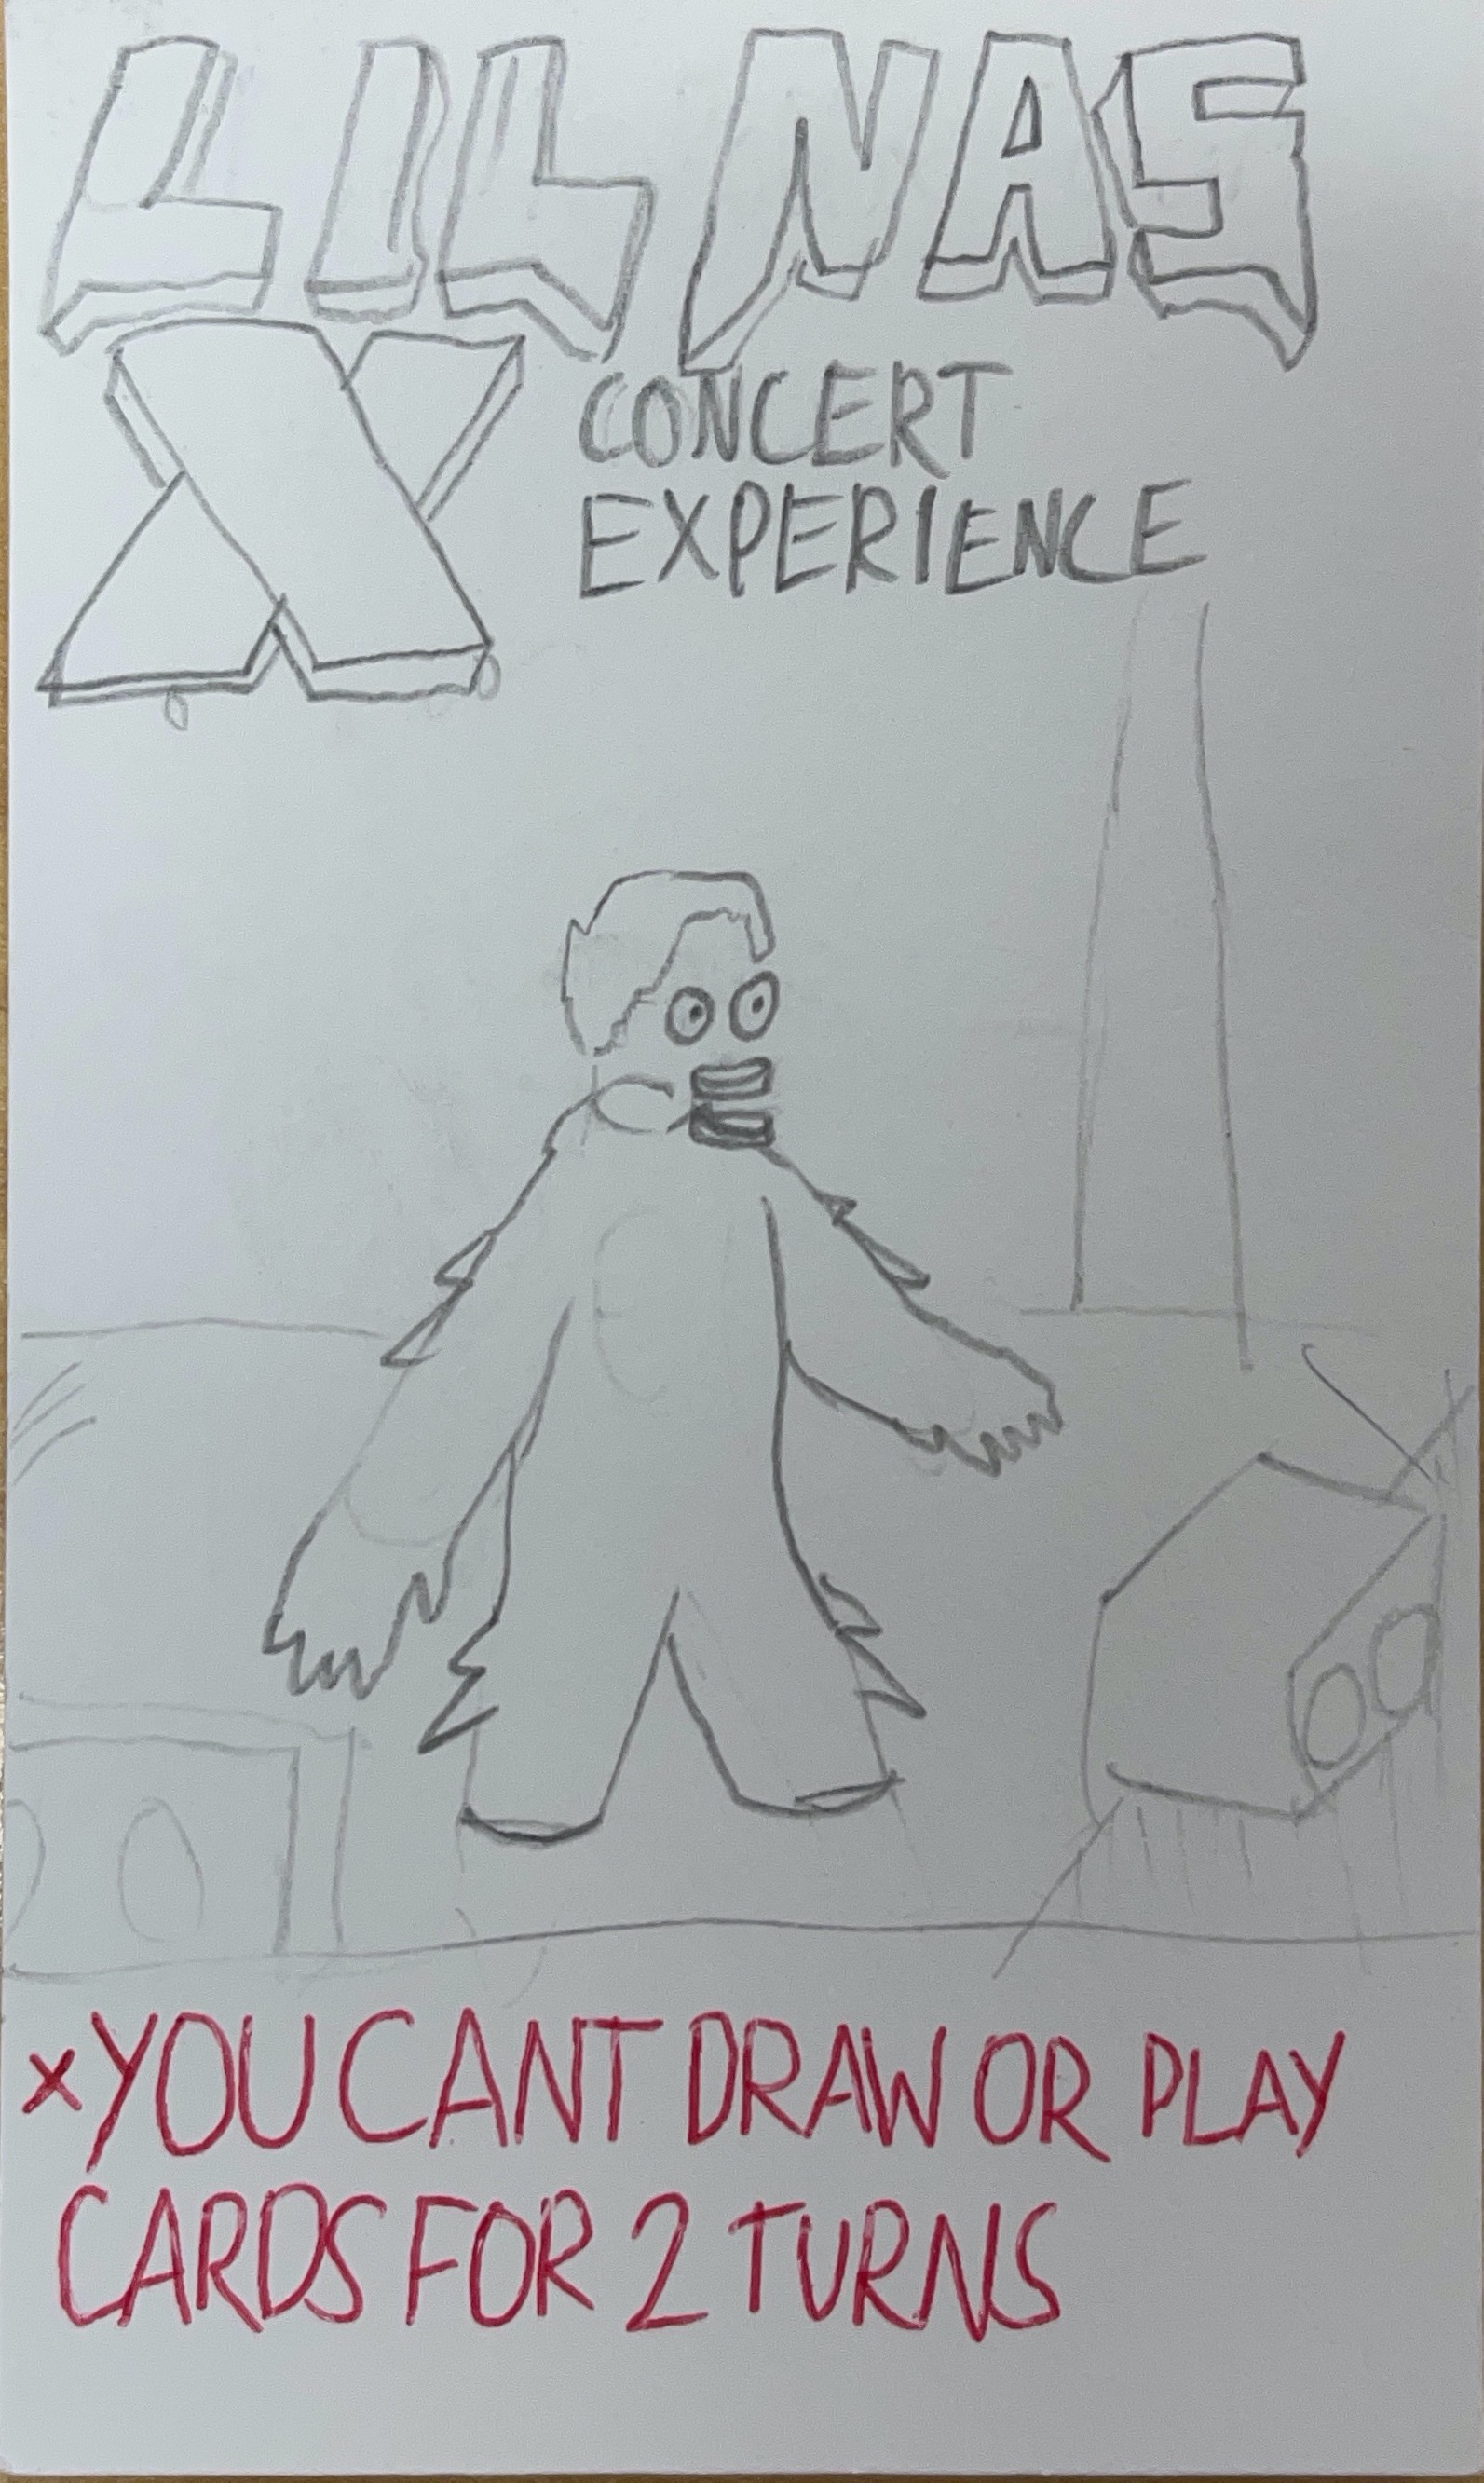 LIL NAS
X
CONCERT
EXPERIENCE
×YOU CANT DRAW OR PLAY
CARDS FOR 2 TURNS